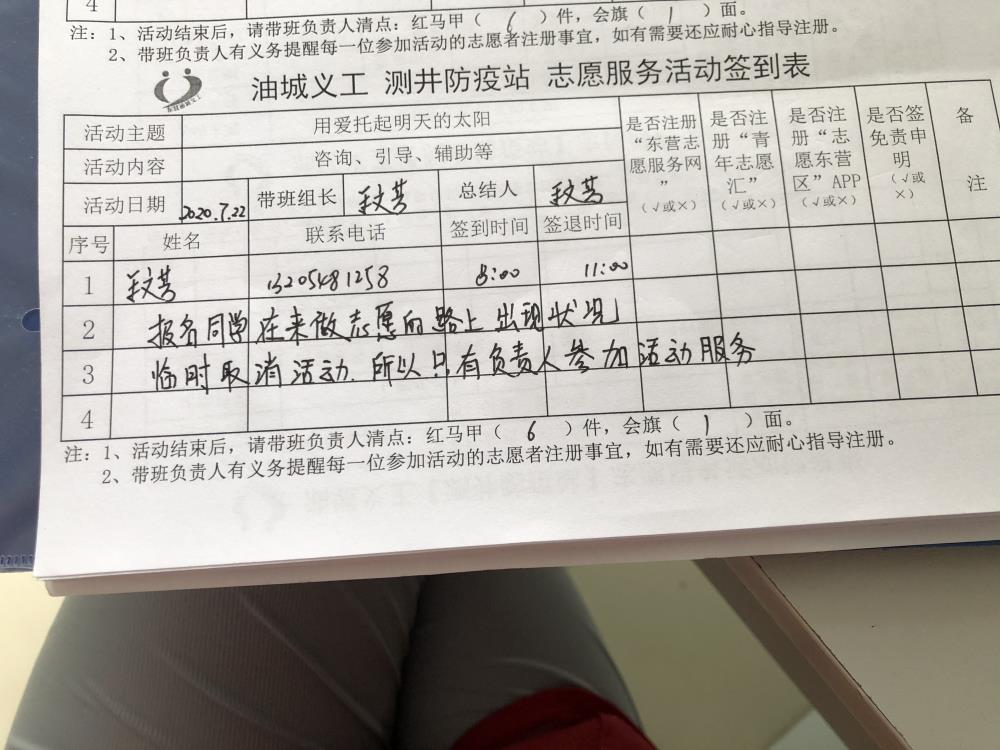 4
注：1、活动结束后，请带班负责人清点：红马甲（ 6 ）件，会旗（ 1 ）面。
2、带班负责人有义务提醒每一位参加活动的志愿者注册事宜，如有需要还应耐心指导注册。
油城义工 测井防疫站 志愿服务活动签到表
活动主题 用爱托起明天的太阳 是否注册“东营志愿服务网”（√或×） 是否注册“青年志愿汇”（√或×） 是否注册“志愿东营区”APP（√或×） 是否签免责申明（√或×） 备注
活动内容 咨询、引导、辅助等
活动日期 2020.7.22 带班组长 总结人
序号 姓名 联系电话 签到时间 签退时间
1 13205481258 8:00 11:00
2 报名同学在来做志愿的路上出现状况
3 临时取消活动.所以只有负责人参加活动服务
4
注：1、活动结束后，请带班负责人清点：红马甲（ 6 ）件，会旗（ 1 ）面。
2、带班负责人有义务提醒每一位参加活动的志愿者注册事宜，如有需要还应耐心指导注册。